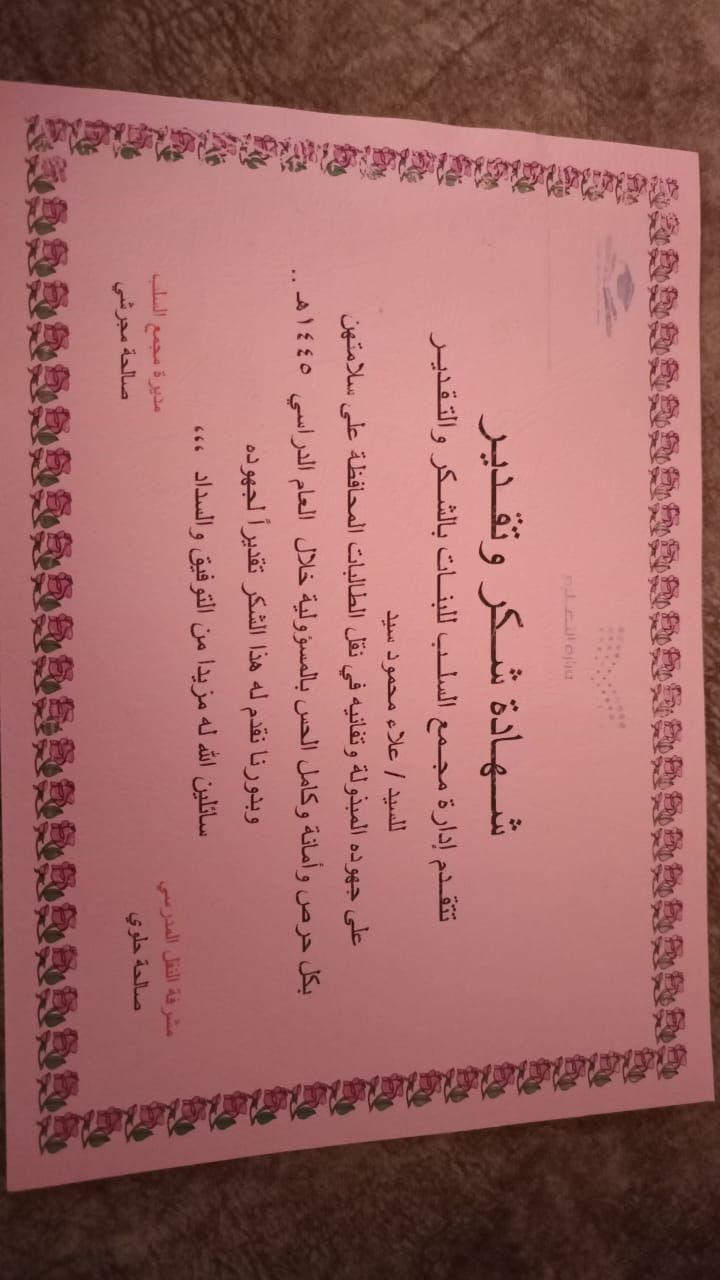 وزارة التعليم
شهادة شكر وتقدير
تتقدم إدارة مجمع السلب للبنات بالشكر والتقدير
للسيد / علاء محمود سيد
على جهوده المبذولة وتفانيه في نقل الطالبات المحافظة على سلامتهن
بكل حرص وأمانة وكامل الحس بالمسؤولية خلال العام الدراسي ١٤٤٥هـ ..
وبدورنا نقدم له هذا الشكر تقديراً لجهوده
سائلين الله له مزيدا من التوفيق والسداد ،،،
مشرفة النقل المدرسي
صالحة حلوي
مديرة مجمع السلب
صالحة مجرشي